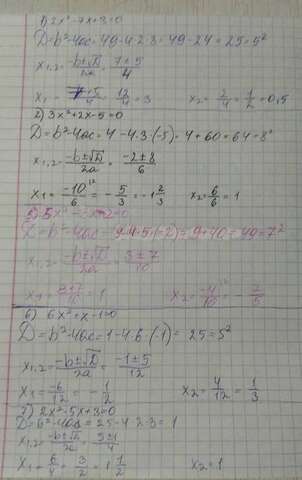 1) 2x² - 7x + 3 = 0
D = b² - 4ac = 49 - 4·2·3 = 49 - 24 = 25 = 5²
x₁,₂ = (-b ± √D)/2a = (7 ± 5)/4
x₁ = (7 + 5)/4 = 12/4 = 3 x₂ = 2/4 = 1/2 = 0,5
2) 3x² + 2x - 5 = 0
D = b² - 4ac = 4 - 4·3·(-5) = 4 + 60 = 64 = 8²
x₁,₂ = (-b ± √D)/2a = (-2 ± 8)/6
x₁ = -10/6 = -5/3 = -1 2/3 x₂ = 6/6 = 1
5x² - 2 = 0
D = b² - 4ac = 9 - 4·5·(-2) = 9 + 40 = 49 = 7²
x₁,₂ = (-b ± √D)/2a = (3 ± 7)/10
x₁ = = 1 x₂ = -4/10 = -2/5
6) 6x² + x - 1 = 0
D = b² - 4ac = 1 - 4·6·(-1) = 25 = 5²
x₁,₂ = (-b ± √D)/2a = (-1 ± 5)/12
x₁ = -6/12 = -1/2 x₂ = 4/12 = 1/3
2x² - 5x + 3 = 0
D = b² - 4ac = 25 - 4·2·3 = 1
x₁,₂ = (-b ± √D)/2a = (5 ± 1)/4
x₁ = 6/4 = 3/2 = 1 1/2 x₂ = 1